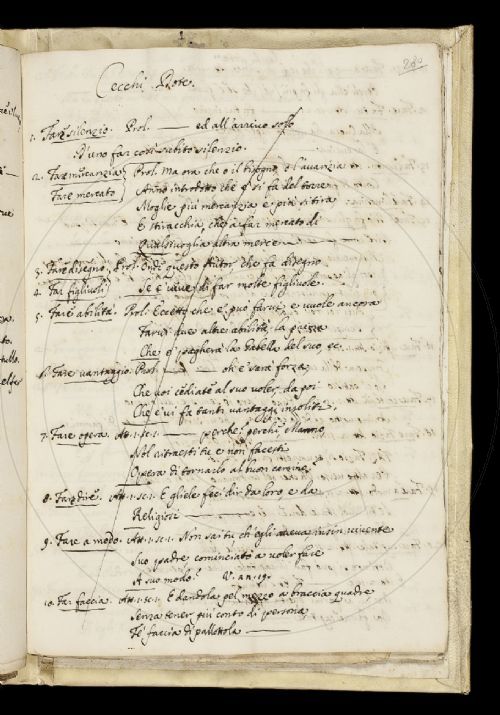 280
Cecchi Dote.
1. Fare silenzio. Prol. — ed all'arrivo solo
D'uno far così subito silenzio.
2. Far mercanzia Prol. Ma ora che o il bisogno, o l'avarizia
Fare mercato Anno introdotto che si fa del torre
Moglie più mercanzia e più si tira
E stiracchia, che a far mercato di
Qualsivoglia altra mercen
3. Fare disegno, Prol. Ond' questo Autor, che fa disegno
4. Far figliuoli Se e' vive di far molte figliuole.
5. Fare abilità. Prol. Eccetto che e' può farvi, e vuole ancora
Farvi due altre abilità, la prima
Che e' pagherà la gabella del suo, ec.
6. Fare vantaggio. Prol. — oh e' sarà forza
Che voi al suo voler, da poi
Che e' vi fa tanti vantaggi insoliti.
7. Fare opera. Att. 1. sc. 1. — perché? perché, Manno,
Nol ritraesti tu e non facesti
Opera di tornarlo al buon
8. Far dire. Att. 1. sc. 1. E gliele feci dir da loro, e da
Religiosi —
9. Fare a modo. Att. 1. sc. 1. Non sai tu ch'egli aveva insin vivente
Suo padre cominciato a voler fare
A suo modo? V. an. 19.
10. Far faccia. Att. 1. sc. 1. E dandola pel mezzo a braccia quadre
Senza tener più conto di persona
Fe' faccia di pallottola —